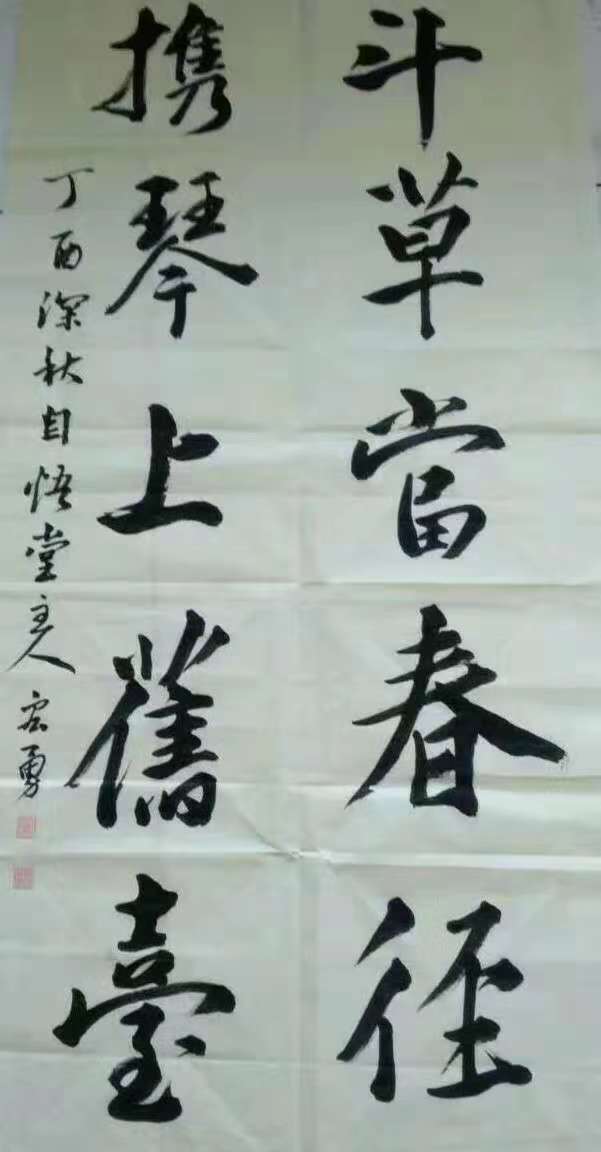 斗草當春径
携琴上舊臺
丁酉深秋自悟堂主人宏勇